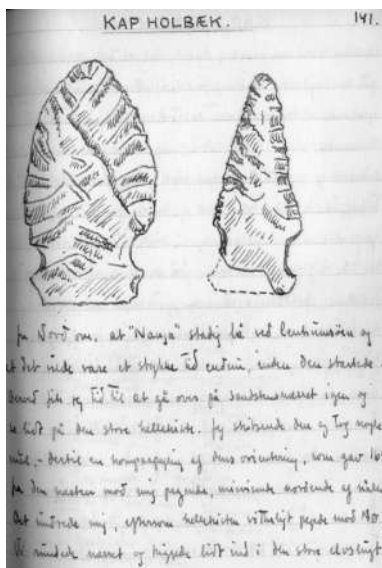 KAP HOLBÆK. 141.
fra Nord om. at "Nanja" stadig lå ved Centrumsøen og
at det vilde vare et stykke tid endnu, inden den startede
Derved fik jeg tid til at gå over på sandstensnæsset igen og
se lidt på den store hellekiste. Jeg skitserede den og tog nogle
mål, - dertil en kompaspejling af dens orientering, som gav
fra den næsten mod mig pegende, misvisende nordende af nålen
Det undrede mig, eftersom hellekisten pegede mod
Vi rundede næsset og kiggede lidt ind i den store